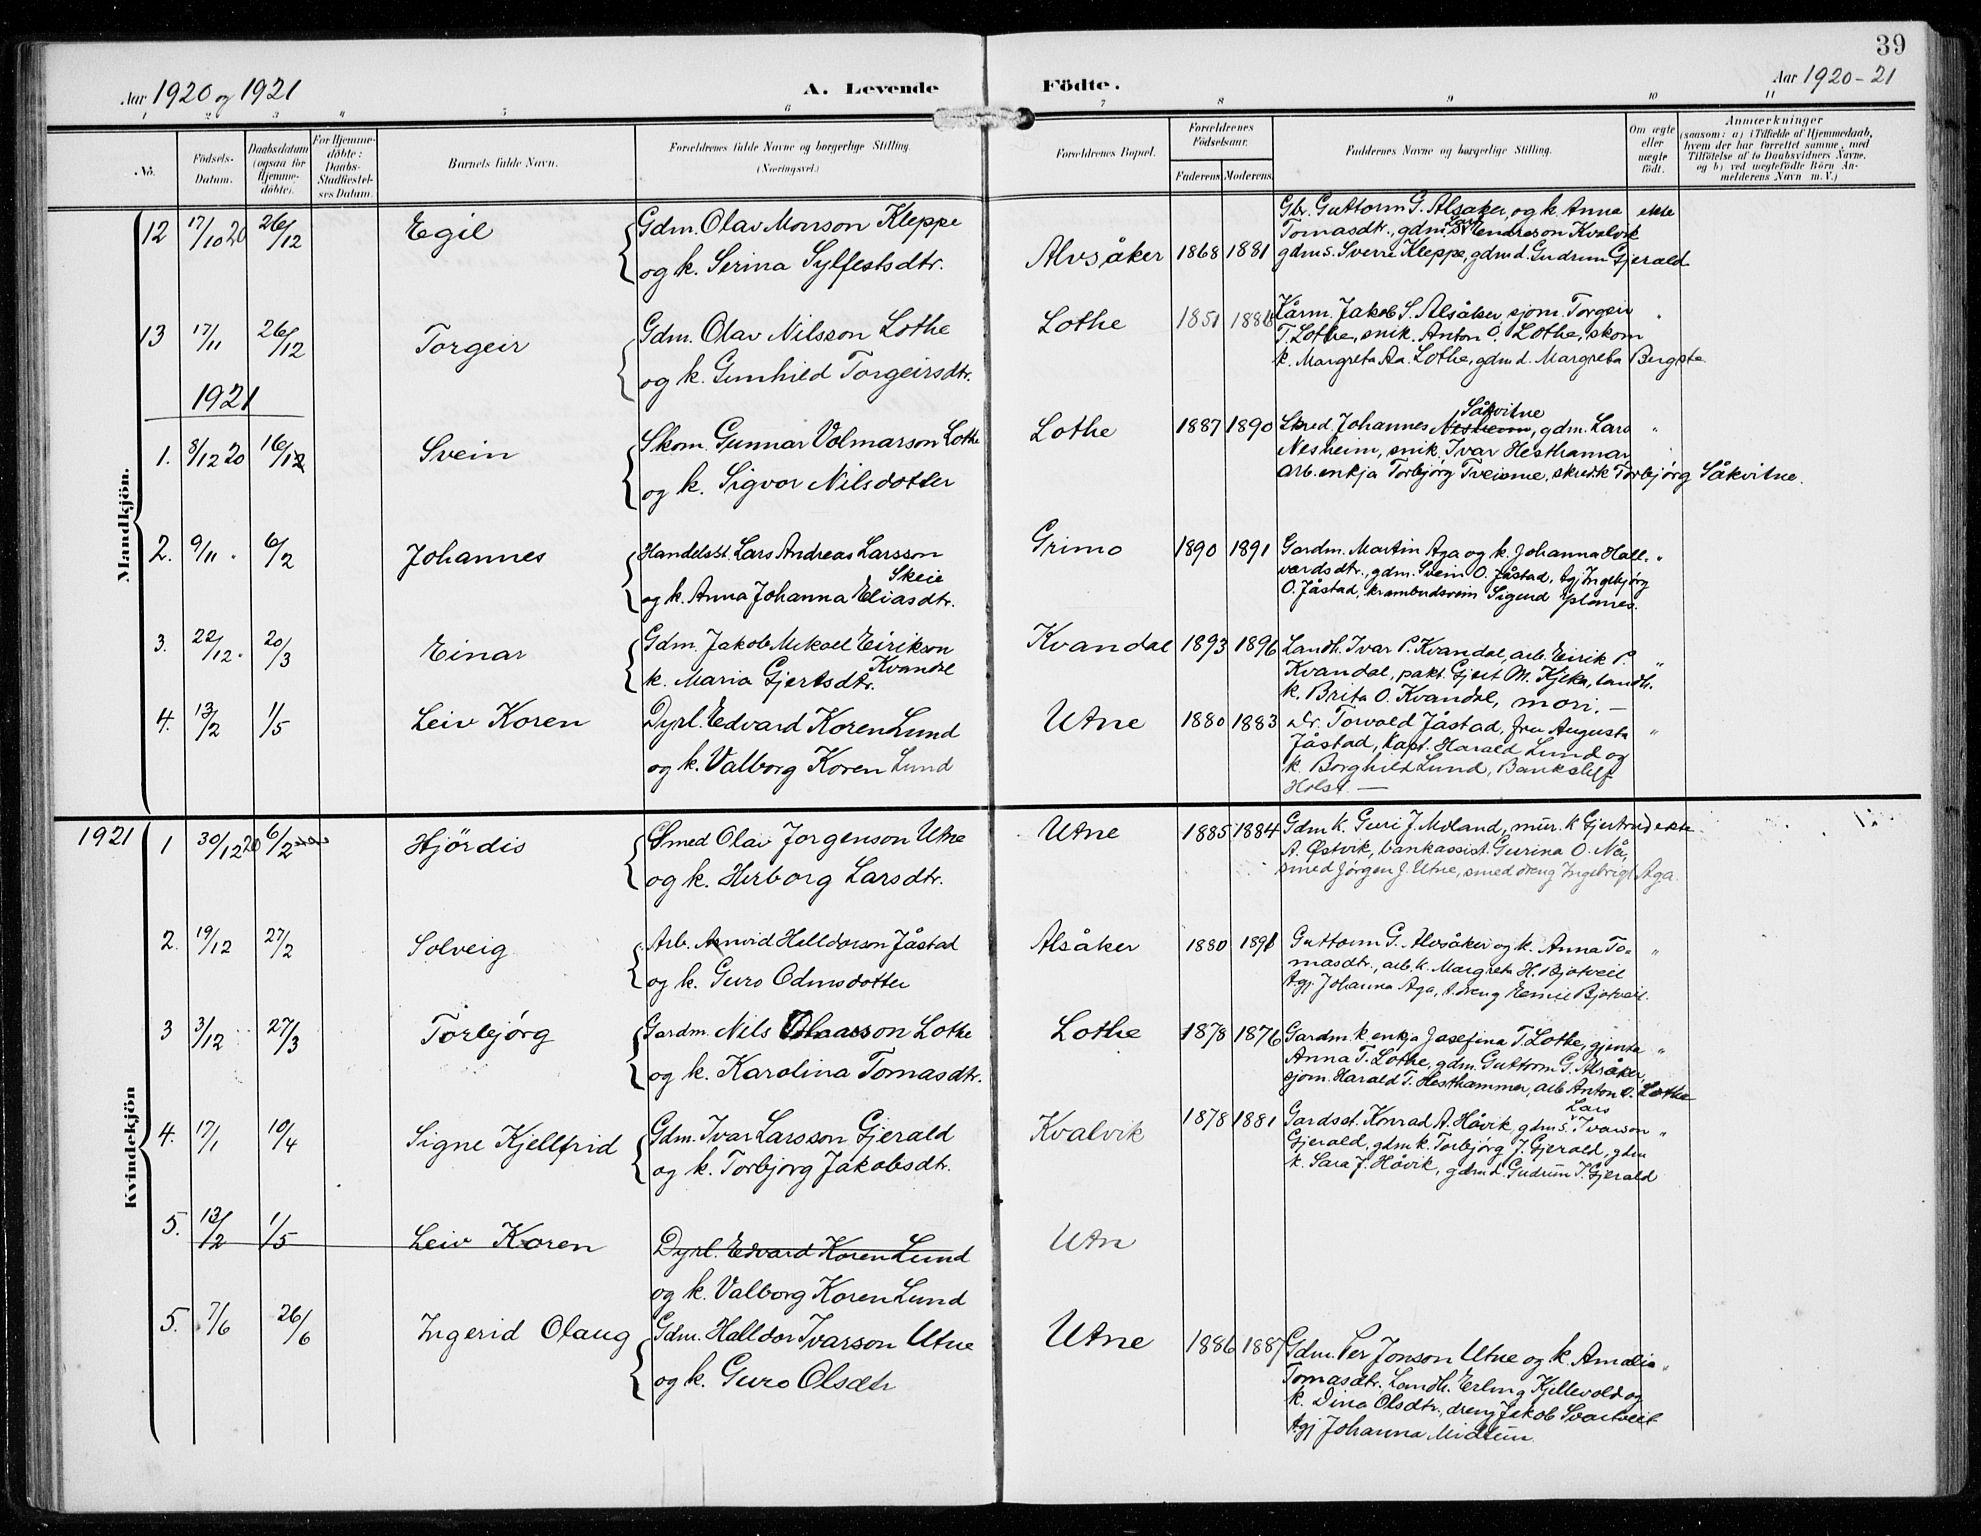 39
Aar 1920 og 1921
A. Levende
Födte.
Aar 1920-21
1 2 3 4 5 6 7 8 9 10 11
No.
Födsels-Datum.
Daabsdatum (ogsaa for Hjemme-döbte).
For Hjemme-döbte: Daabs-Stadfæstel-ses Datum.
Barnets fulde Navn.
Forældrenes fulde Navne og borgerlige Stilling.
(Næringsvei.)
Forældrenes Bopæl.
Forældrenes Födselsaar.
Faderens Moderens.
Faddernes Navne og borgerlige Stilling.
Om ægte eller uægte födt.
Anmærkninger
(saasom: a) i Tilfælde af Hjemmedaab, hvem der har forrettet samme, med Tilföielse af to Daabsvidners Navne, og b) ved uægtefödte Börn An-melderens Navn m. V.)
Mandkjön.
12 17/10 20 26/12 Egil
Gdm. Olav Monson Kleppe
og k. Serina Sylfestsdtr.
Alvsåker 1868 1881
Gbr. Guttorm G. Alsaker, og k. Anna ekte
Tomasdtr., gdm. Lars Hendreson Kvalvik
gdms. Sverre Kleppe, gdmd. Gudrun Gjerald
13 17/11 26/12 Torgeir
Gdm. Olav Nilsson Lothe
og k. Gunhild Torgeirsdtr.
Lothe 1851 1886
Kårm. Jakob S. Alsåker, sjom. Torgeir "
T. Lothe, snik. Anton O. Lothe, skom
k. Margreta Aa. Lothe, gdmd. Margreta Bergste
1921
1. 8/12 20 16/12 Svein
Skom. Gunnar Volmarson Lothe
og k. Sigvor Nilsdotter
Lothe 1887 1890
Såkvitne
Skred. Johannes Nesheim, gdm. Lars "
Nesheim, snik. Ivar Hesthamar
arb. enkja Torbjørg Tveisme, skredk Torbjørg Såkvitne.
2. 9/11 . 6/2 Johannes
Handelsst. Lars Andreas Larsson
Skeie
og k. Anna Johanna Eliasdtr.
Grimo 1890 1891
Gardm. Martin Aga og k. Johanna Hall- "
vardsdtr., gdm. Svein O. Jåstad, tgj Ingebjørg
O. Jåstad, krambudsvein Sigurd Ystanes.
3. 22/12. 20/3 Einar
Gdm. Jakob Mikael Eirikson
Kvandal
k. Maria Gjertsdtr.
Kvandal 1893 1896
Landh. Ivar P. Kvandal, arb. Eirik P. "
Kvandal, pakt. Gjert M. Kjeka, landh.
k. Brita O. Kvandal, mori. —
4. 13/2 1/5 Leiv Koren
Dyrl. Edvard Koren Lund
og k. Valborg Koren Lund
Utne 1880 1883
Dr. Torvald Jåstad, fru Augusta "
Jåstad, Kapt. Harald Lund og
k. Borghild Lund, Bankchef
Holst. —
Kvindekjön
1921
1 30/12 20 6/2 Hjördis
Smed Olav Jorgenson Utne
og k. Herborg Larsdtr.
Utne 1885 1884
Gdmk. Guri J. Moland, mur. k Gjertrud ekte
A. Østvik, bankassist. Gurina O. Nå,
smed Jørgen J. Utne, smed dreng Ingebrigt Aga.
2. 19/12 27/2 Solveig
Arb. Arnvid Halldorson Jåstad
og k. Guro Odmsdotter
Alsåker 1880 1891
Guttorm G. Alvsåker og k. Anna To- "
masdtr., arb. k. Margreta H. Bjotveit
tgj. Johanna Aga, t. dreng Eemil Bjotveit.
3 3/12 27/3 Torbjørg
Gardm. Nils Olaasson Lothe
og k. Karolina Tomasdtr.
Lothe 1878 1876
Gardm. k. enkja Josefina T. Lothe, gjenta "
Anna T. Lothe, gdm. Guttorm G. Alsåker,
sjom. Harald T. Hesthammer, arb Anton O. Lothe
4. 17/1 10/4 Signe Kjellfrid
Gdm. Ivar Larsson Gjerald
og k. Torbjørg Jakobsdtr.
Kvalvik 1878 1881
Lars
Gardsst. Konrad A. Håvik, gdms. Ivarson "
Gjerald, gdmk. Torbjørg J. Gjerald, gdm
k. Sara J. Håvik, gdmd. Gudrun I. Gjerald
5. 13/2 1/5 Leiv Koren
Dyrl. Edvard Koren Lund
og k. Valborg Koren Lund
Utn
5. 7/6 26/6 Ingerid Olaug
Gdm. Halldor Ivarson Utne
og k. Guro Olsdtr
Utne 1886 1887
Gdm. Per Jonson Utne og k. Amalia "
Tomasdtr. Landh. Erling Kjellevold og
k. Dina Olsdtr., dreng Jakob Svartveit
tgj Johanna Midtun.